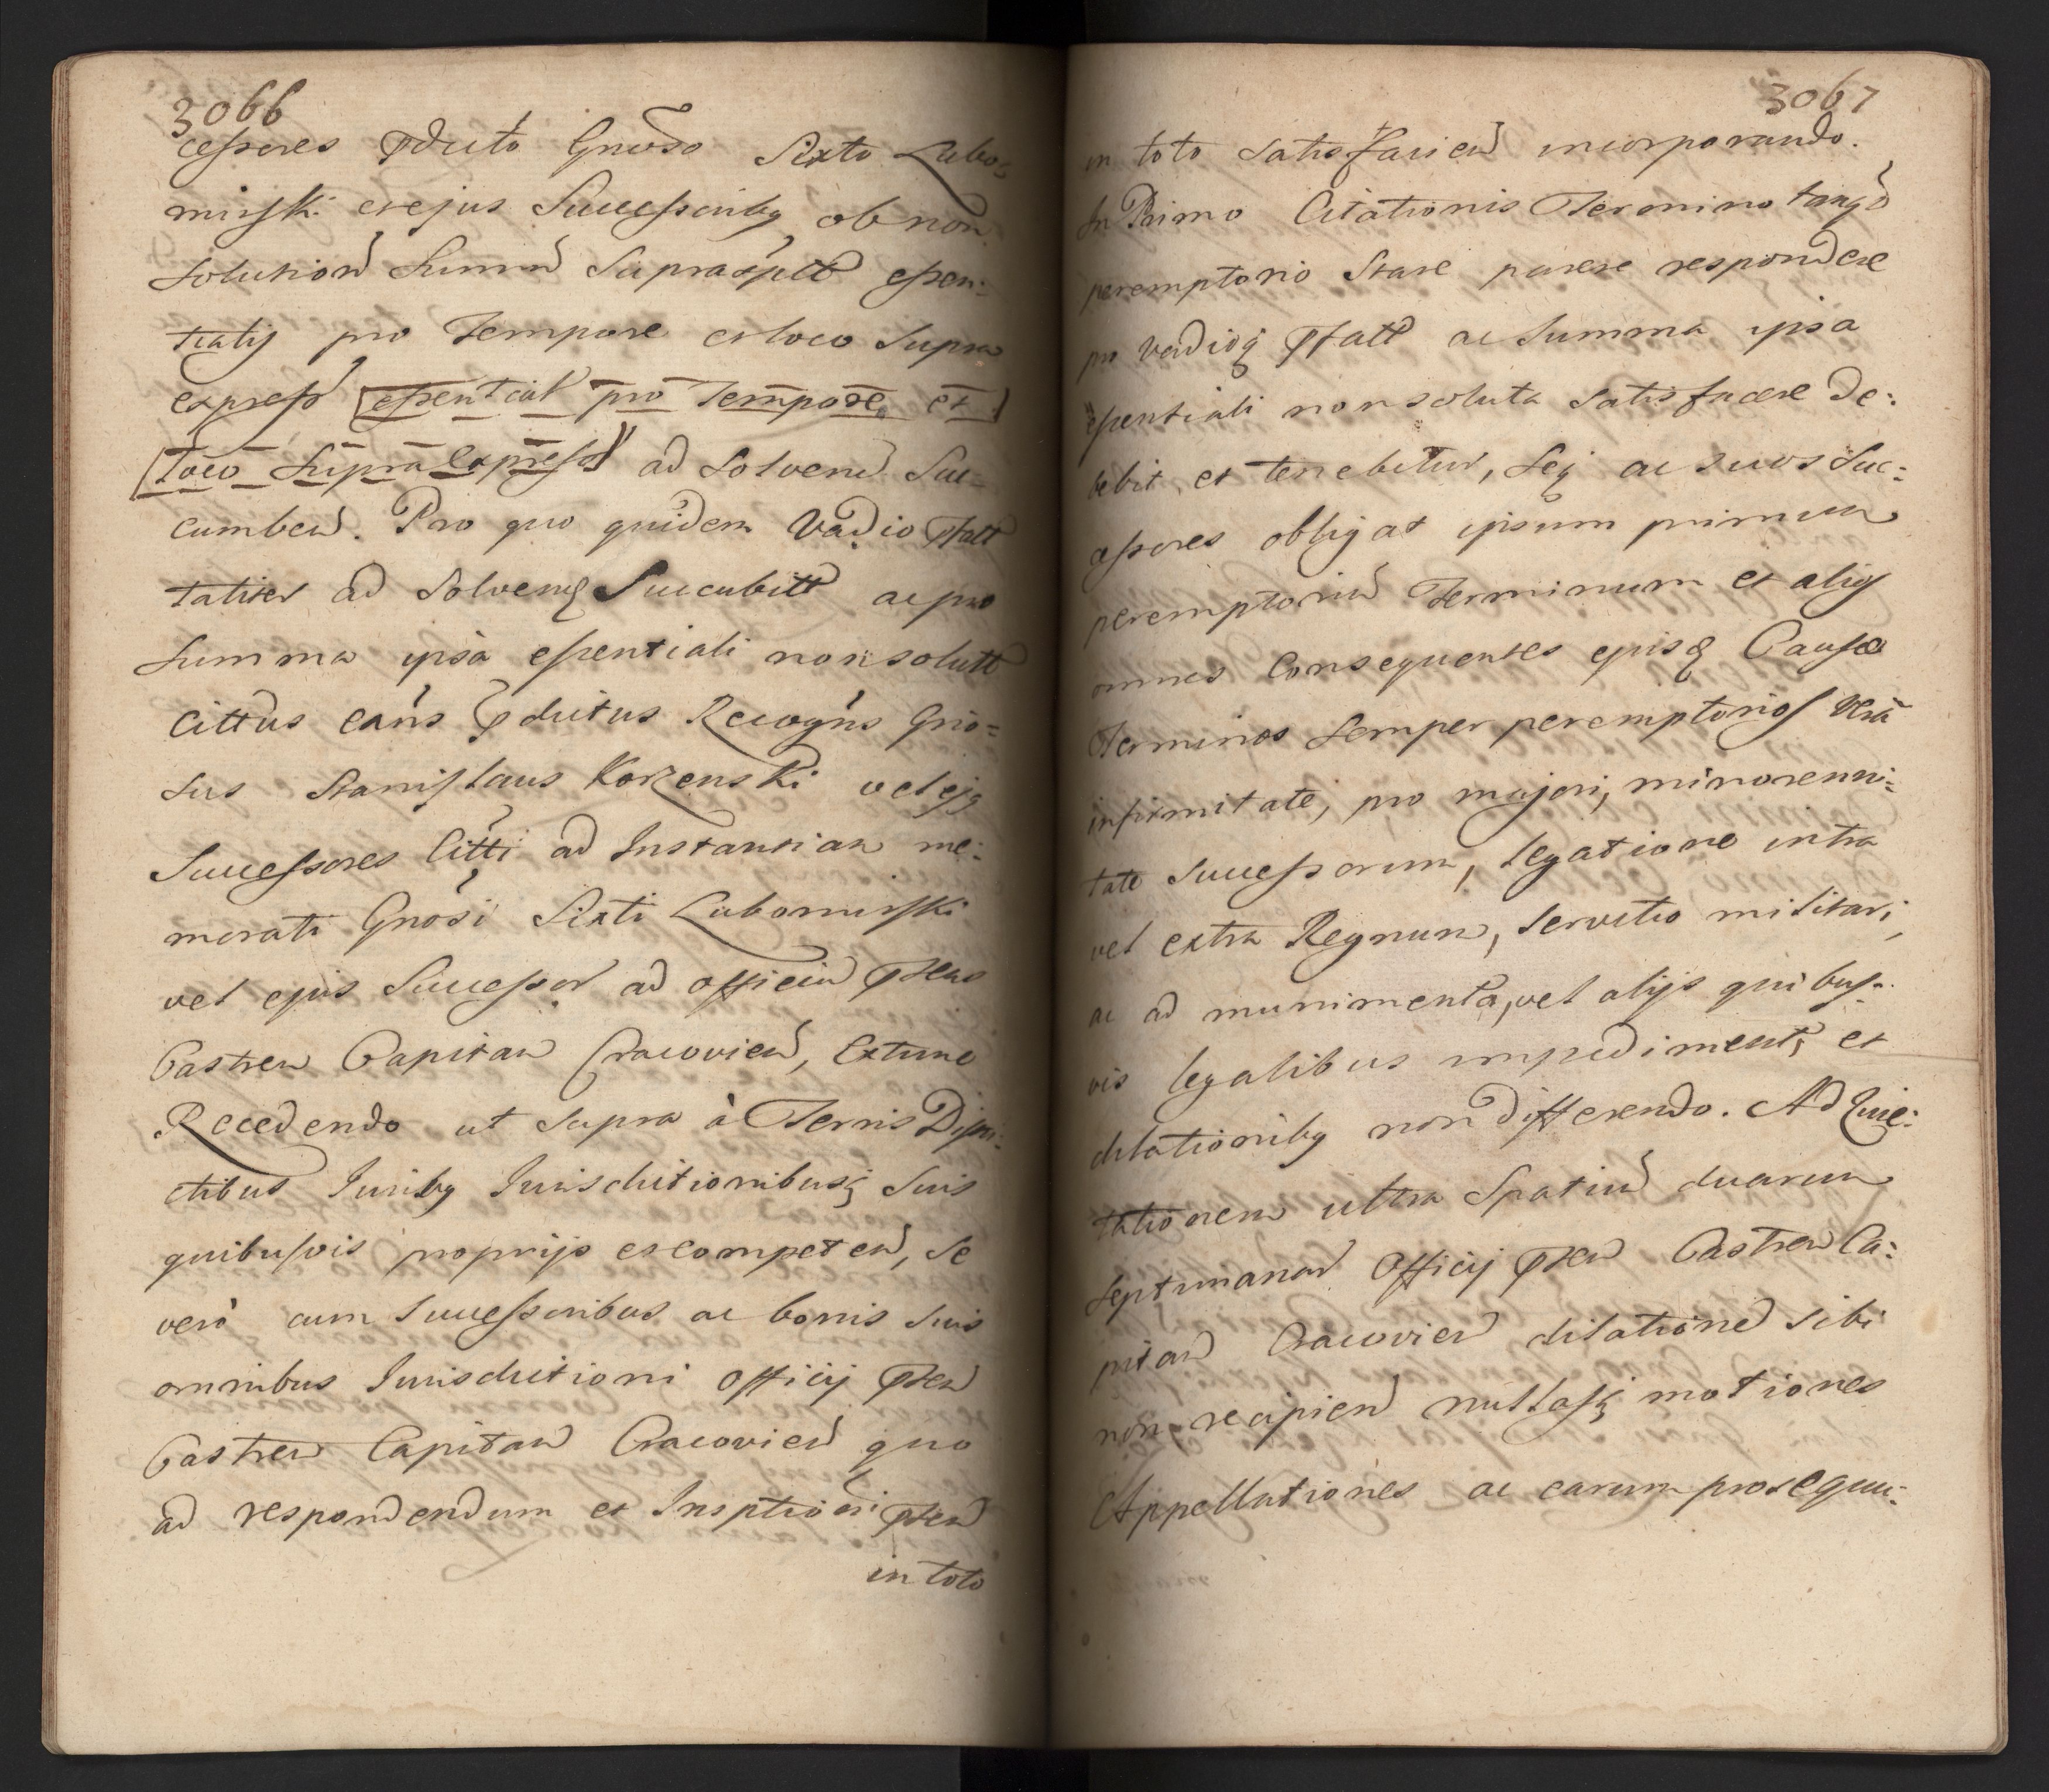 3066
cessores pdicto Gnoso Sixto Lubo-
mirski et ejus Successoribq ob non
solution Summ Suprascptt essen-
tialis pro Tempore et loco Supra
express essential pro Tempore et
loco Supra express ad Solvend Suc-
cumbend. Pro quo quidem Vadio pfatt
taliter ad Solvenq Succubitt ac pro
Summa ipsa essentiali non solutt
Cittus eans pdictus Recogns Gno-
sus Stanislaus Korzenski vel ejq
Successores Citti ad Instantiam me-
morati Gnosi Sixti Lubomirski
vel ejus Successor ad officiu psens
Castren Capitan Cracovien, Extunc
Recedendo ut Supra à Terris Distri-
ctibus Juribq Jurisdictionibusq Suis
quibusvis proprijs et competen, Se
verò cum Successoribus ac bonis Suis
omnibus Jurisdictioni Officij psen
Castren Capitan Cracovien quo
ad respondendum et Insptioni psen
in toto
3067
in toto Satisfacien incorporando.
In Primo Citationis Termino tanq
peremptorio Stare parere respondere
pro Vadioq pfatt ac Summa ipsa
essentiali non soluta Satisfacere De-
bebit et tenebitur, Seq ac suos Suc-
cessores obligat ipsum primum
peremptoriu Terminum et alios
omnes Consequentes ejusq Causæ
Terminos Semper peremptorios Verâ
infirmitate, pro majori, minorenni-
tate Successorum, legatione intra
vel extra Regnum, Servitio militari,
ac ad munimenta, vel alijs quibus-
vis legalibus impedimentis et
dilationibq non differendo. Ad Quie-
tationem ultra Spatiu duarum
Septimanar Officij psen Castren Ca-
pitan Cracovien dilationed sibi
non recipien nullasq motiones
Appellationes ac earum prosequu-